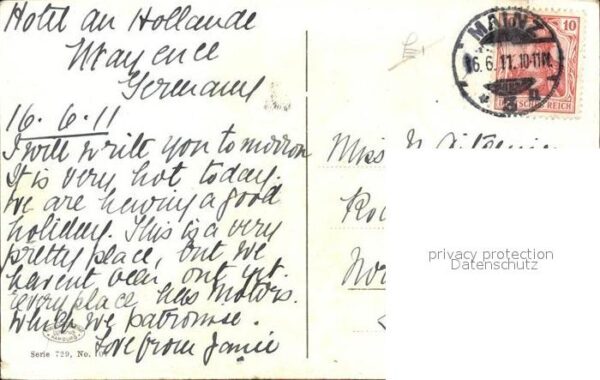 Hotel an Hollande
Mayence
Germany
16.6.11
I will write you tomorrow
It is very hot today.
We are having a good
holiday. This is a very
pretty place, but we
havent been out yet.
Every place has motors.
which we patronise.
Love from Janie
Serie 729, No. 10
MAINZ
16.6.11.10-11N.
* 3 n
10
DEUTSCHES REICH
Miss
privacy protection
Datenschutz